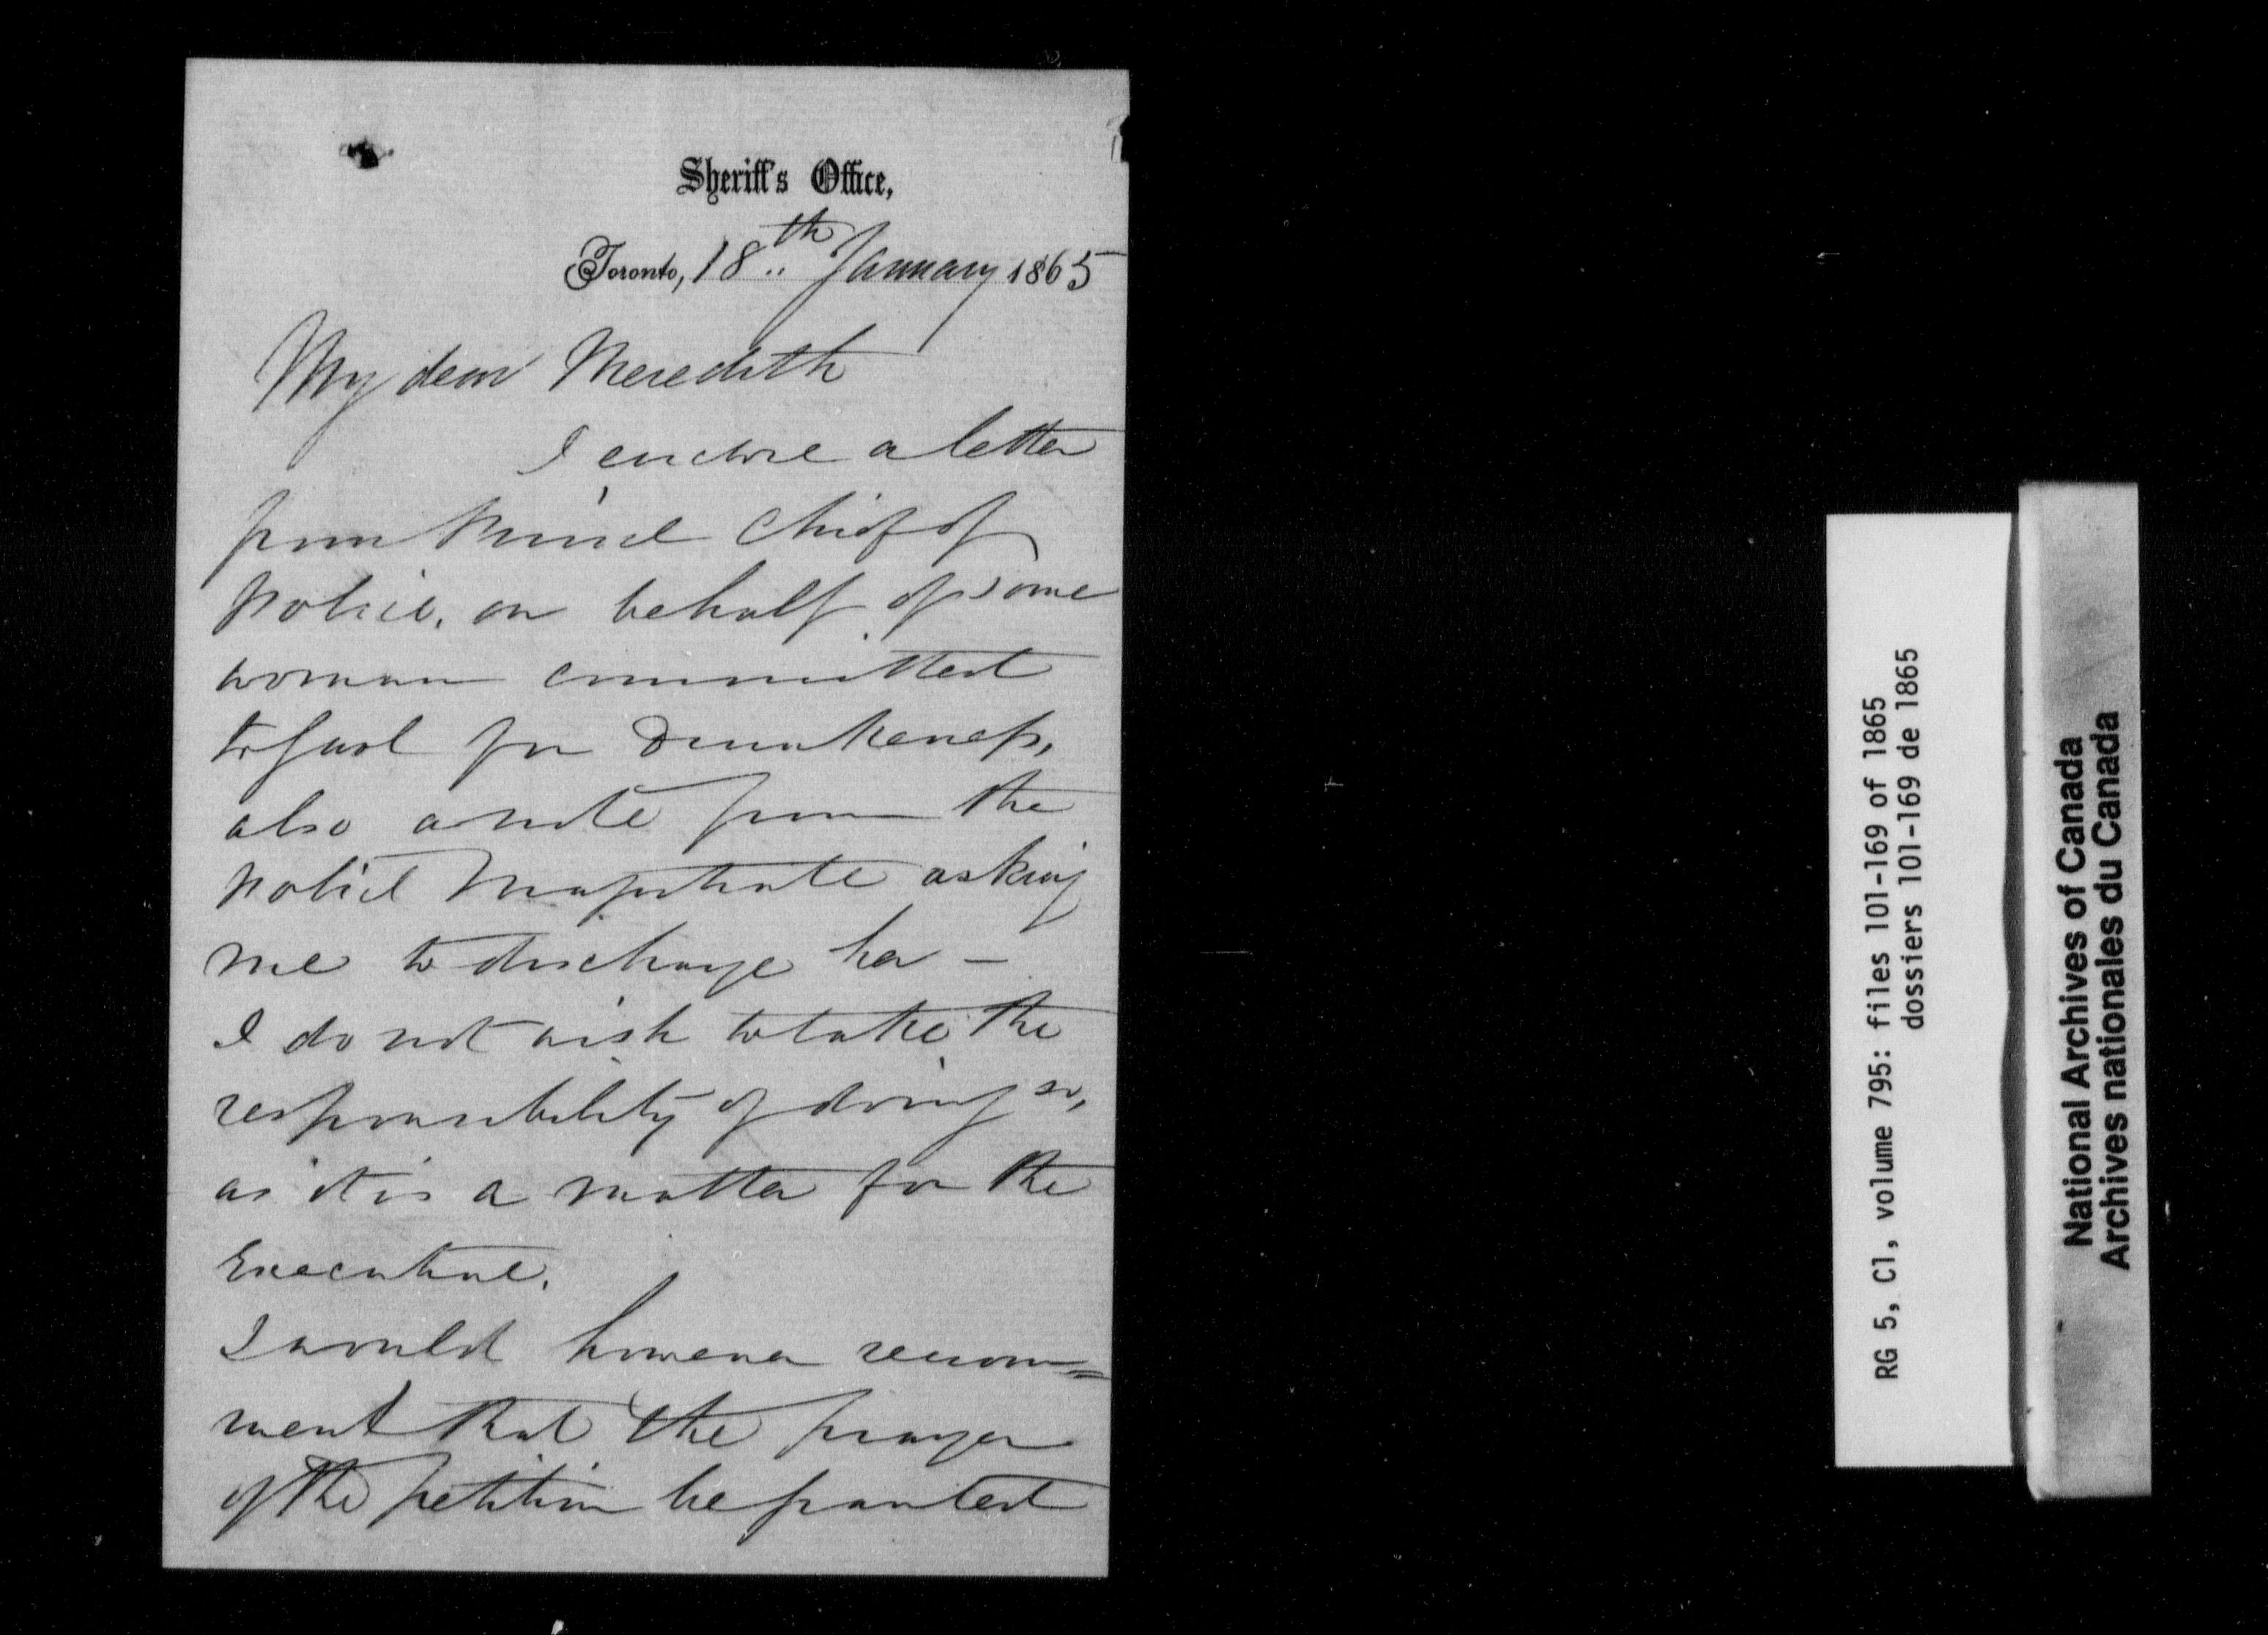 Sheriff's Office,
Toronto, 18th January 1865
My dear Meredith
I enclose a letter
from Prince Chief of
Police, on behalf of some
woman committed
to Gaol for Drunkeness,
also a note from the
Police Magistrate asking
me to discharge her —
I do not wish to take the
responsibility of doing so,
as it is a matter for the
Executive.
I would however recom=
mend that the prayer
of the petition be granted
RG 5, C1, volume 795: files 101-169 of 1865
dossiers 101-169 de 1865
National Archives of Canada
Archives nationales du Canada